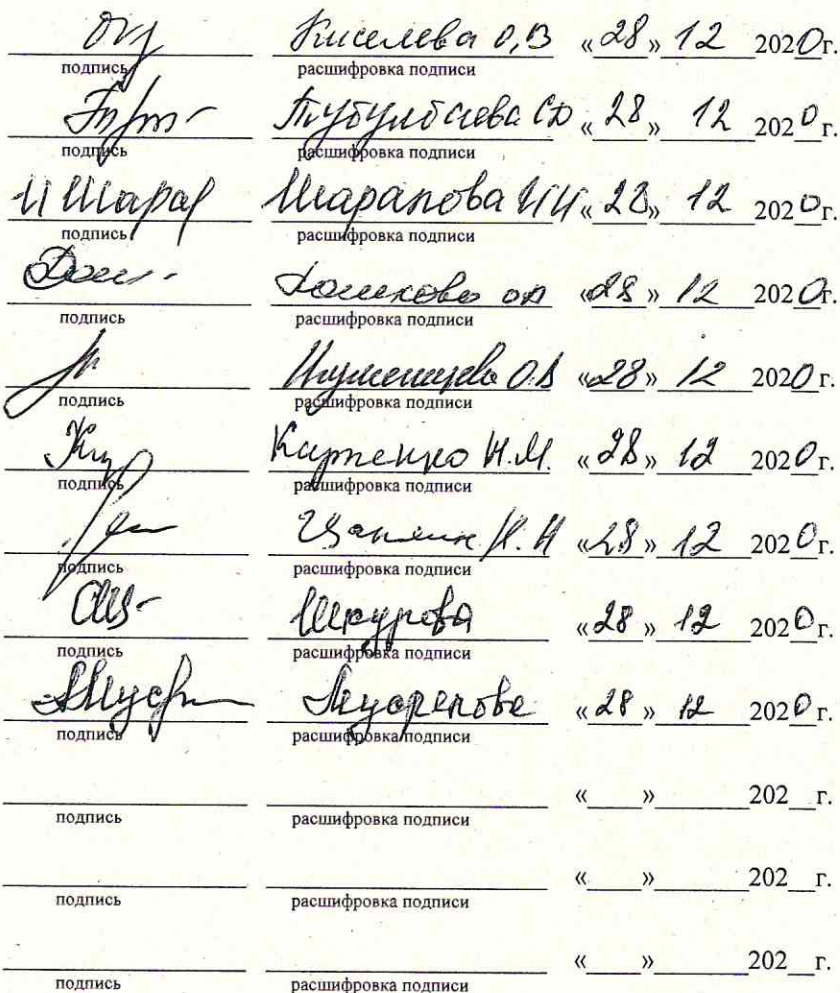 Киселева О,В «28» 12 2020г.
подпись расшифровка подписи
«28» 12 2020г.
подпись расшифровка подписи
И Шарап Шарапова ИИ «28» 12 2020г.
подпись расшифровка подписи
«28» 12 2020г.
подпись расшифровка подписи
О.В «28» 12 2020г.
подпись расшифровка подписи
Н.М. «28» 12 2020г.
подпись расшифровка подписи
«28» 12 2020г.
подпись расшифровка подписи
Шкурова «28» 12 2020г.
подпись расшифровка подписи
«28» 12 2020г.
подпись расшифровка подписи
«___»______202__г.
подпись расшифровка подписи
«___»______202__г.
подпись расшифровка подписи
«___»______202__г.
подпись расшифровка подписи